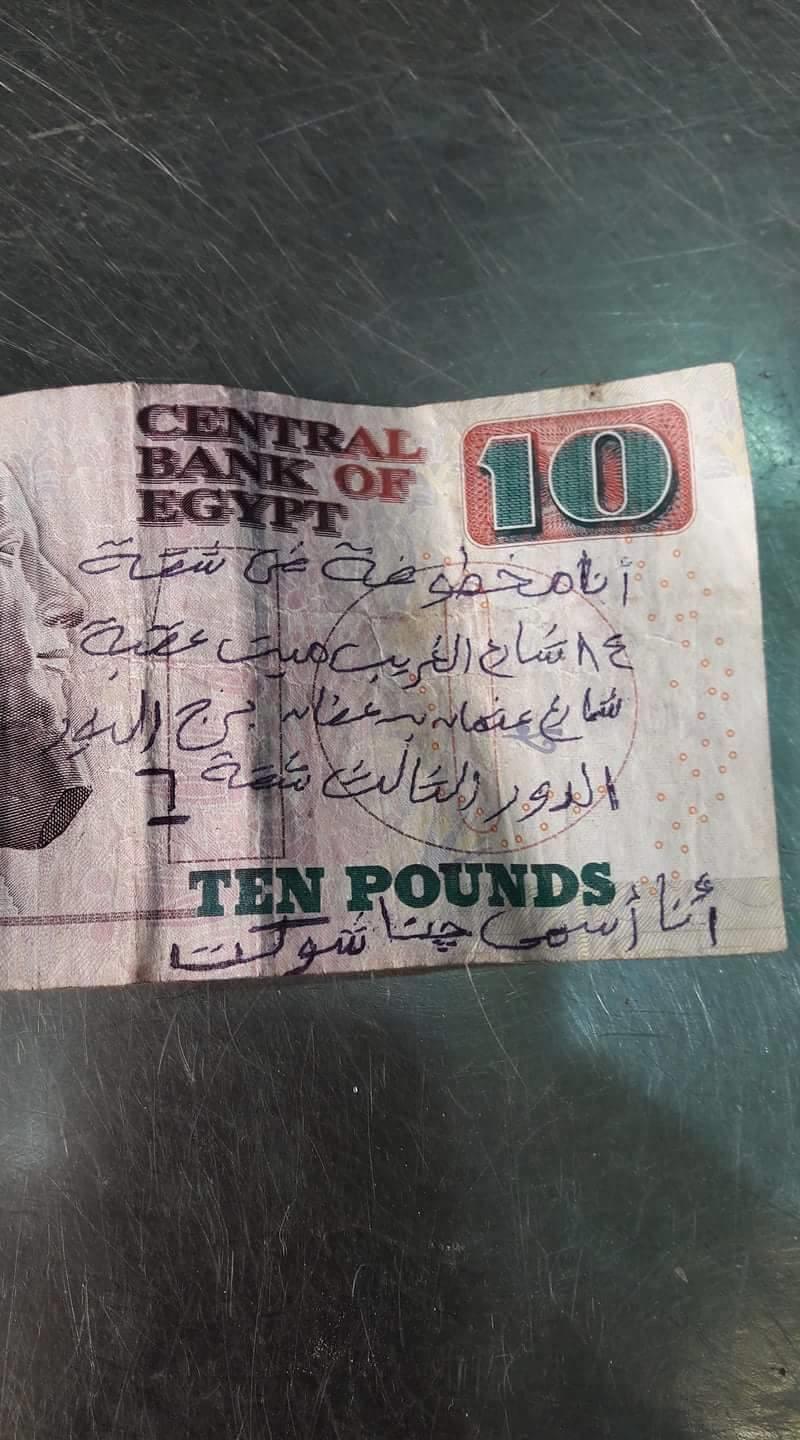 CENTRAL
BANK OF
EGYPT
10
أنا مخطوفة فى شقة
٤٨ شارع الغريب ميت عقبة
شارع عثمان بن عفان برج
الدور الثالث شقة ٦
TEN POUNDS
أنا أسمى چنا شوكت